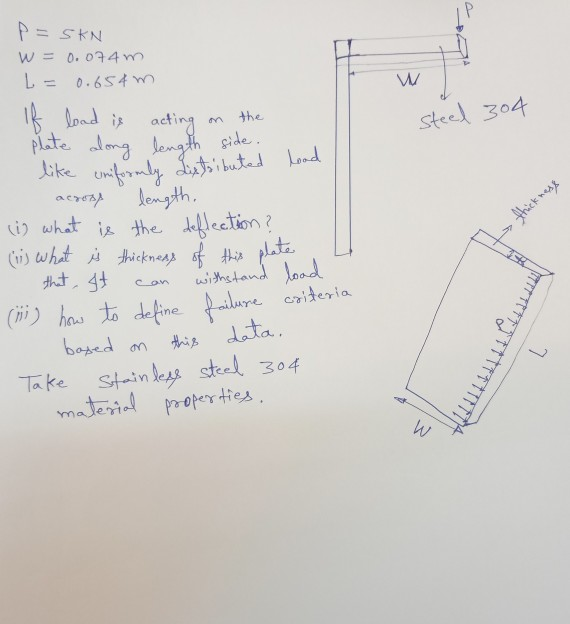 P = 5KN
W = 0.074m
L = 0.654m
If load is acting on the
plate along length side.
like uniformly distributed load
across length.
(i) what is the deflection?
(ii) what is thickness of this plate
that, It can withstand load
(iii) how to define failure criteria
based on this data.
Take Stainless steel 304
material properties.
P
W
Steel 304
thickness
P
L
W